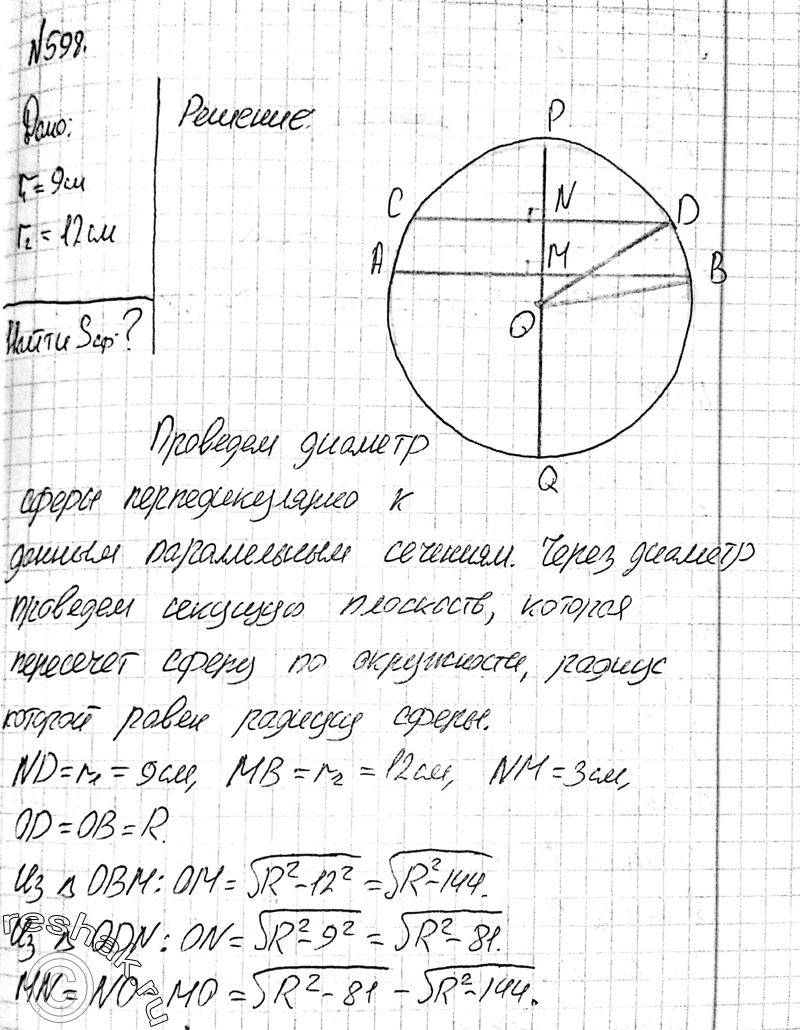 №598.
Дано:
r₁ = 9 см
r₂ = 12 см
Найти Sсф-?
Решение:
P
C
N
D
A
M
B
O
Q
Проведем диаметр
сферы перпедикулярно к
данным параллельным сечениям. Через диаметр
проведем секущую плоскость, которая
пересечет сферу по окружности, радиус
которой равен радиусу сферы.
ND = r₁ = 9 см, MB = r₂ = 12 см, NM = 3 см,
OD = OB = R.
Из △ OBM: OM = √R²-12² = √R²-144.
Из △ ODN: ON = √R²-9² = √R²-81.
MN = NO - MO = √R²-81 - √R²-144.
reshak.ru
©